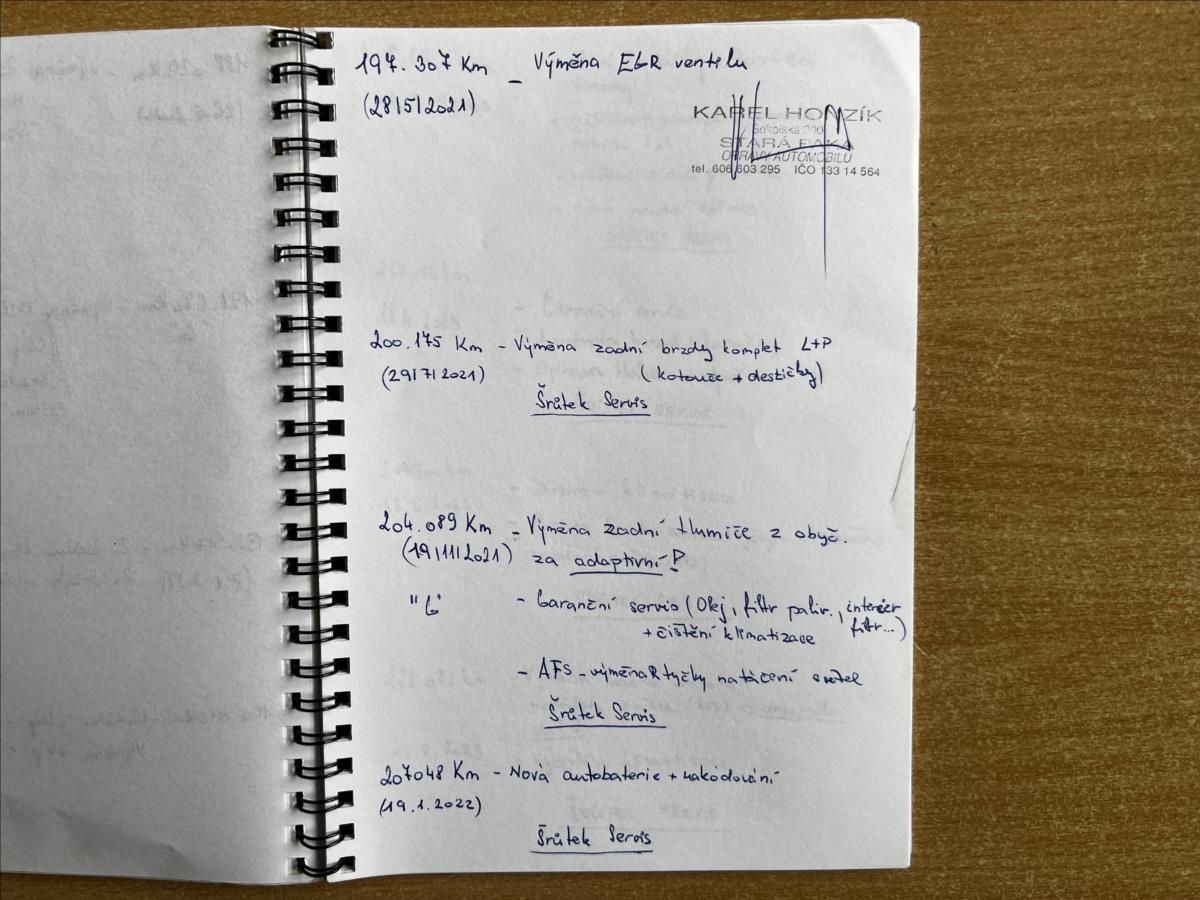 197.307 Km - Výměna EGR ventilu
(28|5|2021)
KAREL HONZÍK
Sokolská 200
STARÁ PAKA
OPRAVY AUTOMOBILŮ
tel. 606 603 295 IČO 133 14 564
200.175 Km - Výměna zadní brzdy komplet L+P
(29|7|2021) (kotouče + destičky)
Šrůtek Servis
204.089 Km - Výměna zadní tlumiče z obyč.
(19|11|2021) za adaptivní!
- Garanční servis (Olej, filtr paliv., interiér
+ čištění klimatizace filtr...)
- AFS - výměna tyčky natáčení světel
Šrůtek Servis
207048 Km - Nová autobaterie + nakódování
(19.1.2022)
Šrůtek Servis